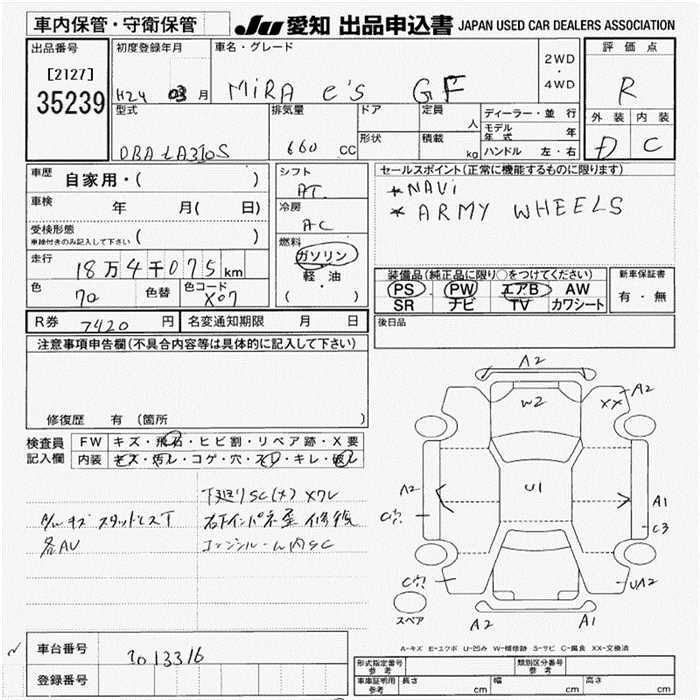 車内保管・守衛保管
JU 愛知 出品申込書 JAPAN USED CAR DEALERS ASSOCIATION
出品番号
[2127]
35239
初度登録年月
H24 03 月
車名・グレード
MiRA e's GF
2WD
・
4WD
評価点
R
外装 内装
D C
型式
DBA LA310S
排気量
660 CC
ドア
形状
定員
人
積載
kg
ディーラー・並行
モデル年式 年
ハンドル 左・右
車歴 自家用・( )
車検 年 月( 日)
受検形態
車検付きのみ記入して下さい ( )
走行 18万4千075km
色 70 色替 色コード X07
シフト
AT
冷房
AC
燃料
ガソリン
軽・油
・
( )
セールスポイント(正常に機能するものに限ります)
*NAVi
* ARMY WHEELS
装備品(純正品に限り○をつけてください)
PS PW エアB AW
SR ナビ TV カワシート
新車保証書
有・無
R券 7420 円 名変通知期限 月 日
後日品
注意事項申告欄(不具合内容等は具体的に記入して下さい)
修復歴 有 (箇所 )
検査員
記入欄
FW キズ・飛石・ヒビ割・リペア跡・X要
内装 キズ・汚レ・コゲ・穴・スレ・キレ・破レ
下廻りSC(大)
A/Wキズ スタッドレスT
各AU
修復
内SC
A2
W2
XX
A2
A2
U1
A1
C穴
C3
C穴
UA2
スペア
A2
A1
A-キズ E-エクボ U-凹み W-補修跡 S-サビ C-腐食 XX-交換済
車台番号 1013316
登録番号
型式指定番号
参考
類別区分番号
参考
車庫証明用
参考
長さ cm 幅 cm 高さ cm